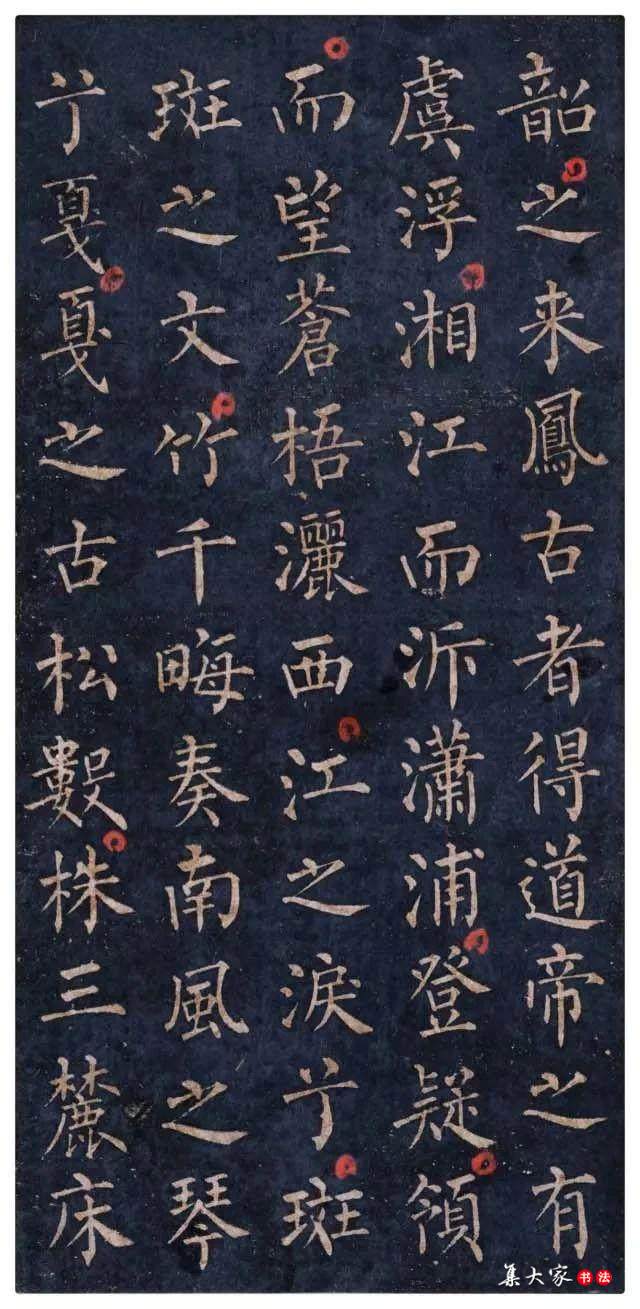 韶之来鳳古者得道帝之有
虞浮湘江而泝瀟浦登疑領
而望蒼梧灑西江之淚亍斑
斑之文竹千晦奏南風之琴
亍戛戛之古松數株三麓床
集大家书法